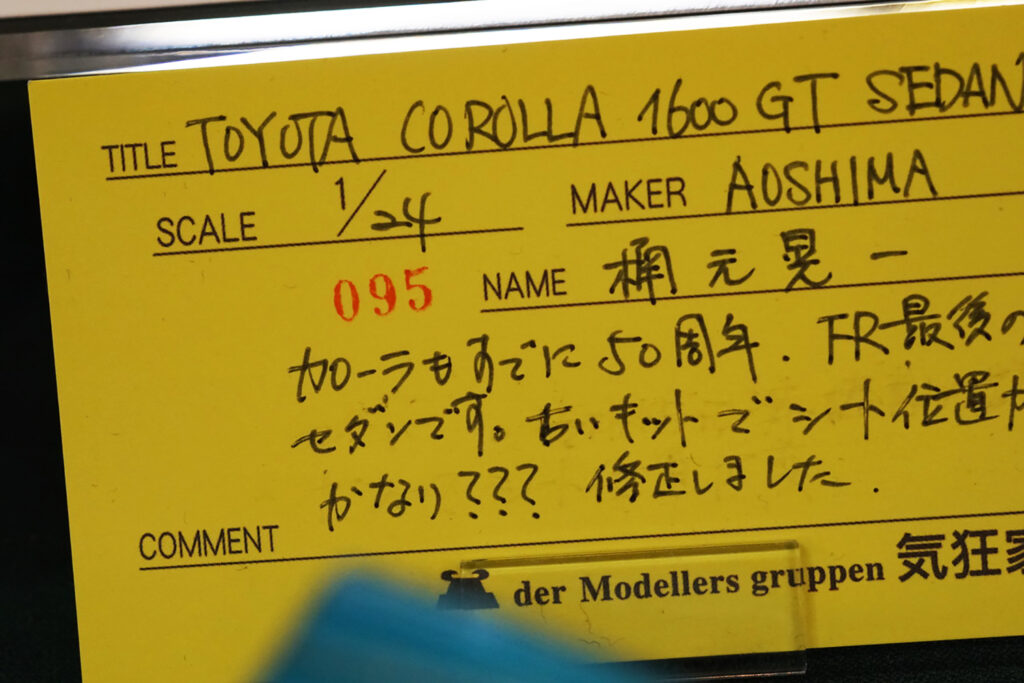 TITLE TOYOTA COROLLA 1600 GT SEDAN
SCALE 1/24 MAKER AOSHIMA
095 NAME 元晃一
カローラもすでに50周年. FR最後の
セダンです。古いキットでシート位置が
かなり??? 修正しました.
COMMENT
der Modellers gruppen 気狂家